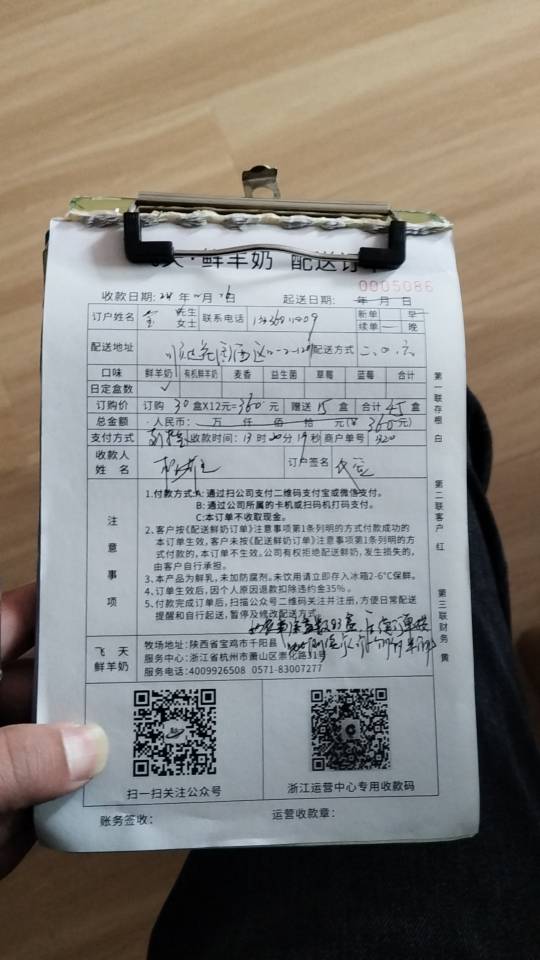 天·鲜羊奶 配送订单
0005086
收款日期: 24 年 月 日 起送日期: 年 月 日
订户姓名 先生 女士 联系电话 新单 早
续单 一 晚
配送地址 配送方式 二、四、六
口味 鲜羊奶 有机鲜羊奶 麦香 益生菌 草莓 蓝莓 合计
日定盒数 ✓
订购价 订购 30 盒X12元=360元 赠送 15 盒 合计 45 盒
总金额 人民币: 万 仟 佰 拾 元(¥ 360元)
支付方式 收款时间: 13 时 20 分 19 秒 商户单号
收款人
姓 名 订户签名
注意事项
1.付款方式:A:通过扫公司支付二维码支付宝或微信支付。
B:通过公司所属的卡机或扫码机打码支付。
C:本订单不收取现金。
2.客户按《配送鲜奶订单》注意事项第1条列明的方式付款成功的
本订单生效,客户未按《配送鲜奶订单》注意事项第1条列明的方
式付款的,本订单不生效,公司有权拒绝配送鲜奶,发生损失的,
由客户自行承担。
3.本产品为鲜乳,未加防腐剂。未饮用请立即存入冰箱2-6℃保鲜。
4.订单生效后,因个人原因退款扣除违约金35%。
5.付款完成订单后,扫描公众号二维码关注并注册,方便日常配送
提醒和自行起送,暂停及修改配送方式。
飞 天
鲜羊奶
牧场地址:陕西省宝鸡市千阳县
服务中心:浙江省杭州市萧山区崇化路31号
服务电话:4009926508 0571-83007277
扫一扫关注公众号 浙江运营中心专用收款码
账务签收: 运营收款章:
第一联存根 白
第二联客户 红
第三联财务 黄